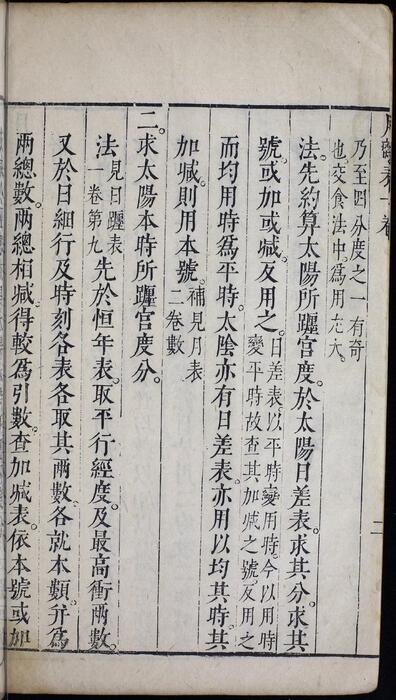 乃至四分度之一有奇
也交食法中為用尤大
法先約算太陽所躔宮度。於太陽日差表。求其分。求其
號。或加或減。反用之。日差表以平時變用時。今以用時
變平時。故查其加減之號。反用之
而均用時為平時。太陰亦有日差表。亦用以均其時。其
加減。則用本號。補見月表
二卷數
二。求太陽本時所躔宮度分。
法見日躔表
一卷第九先於恒年表。取平行經度。及最高衝兩數。
又於日細行及時刻各表各取其兩數。各就本類。并為
兩總數。兩總相減。得較為引數。查加減表。依本號或加